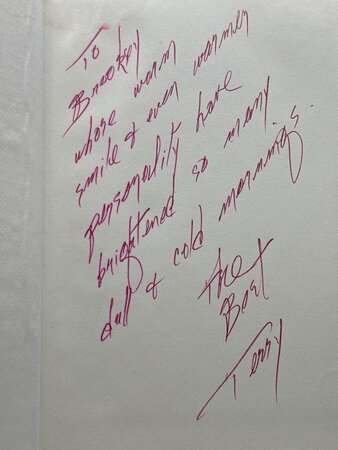 To
Brookey
whose warm
smile & even warmer
personality have
brightened so many
dull & cold mornings.
The
Best
Terry